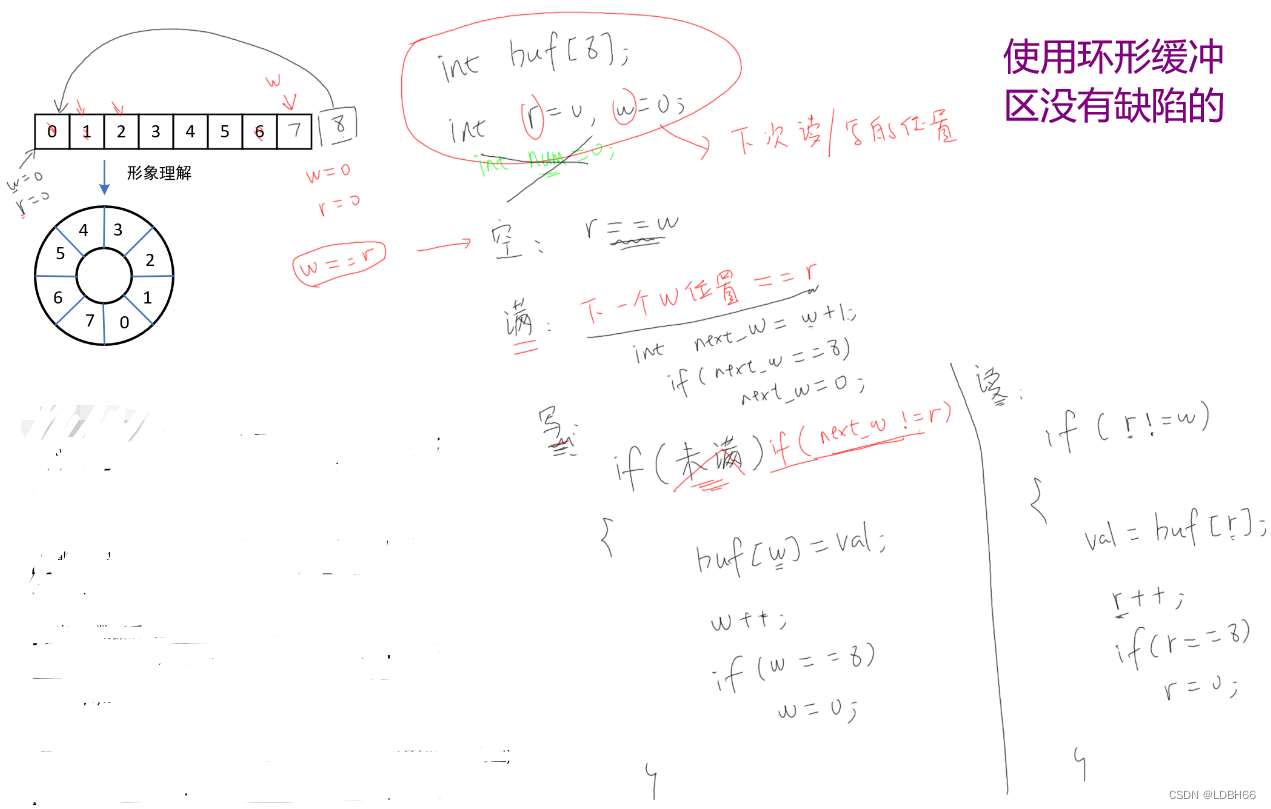 使用环形缓冲
区没有缺陷的
int buf[8];
int r=0, w=0;
int num=0;
下次读/写的位置
w
0 1 2 3 4 5 6 7 8
w=0
r=0
形象理解
w=0
r=0
4 3
5 2
6 1
7 0
w==r
空: r==w
满: 下一个w位置==r
int next_w = w+1;
if(next_w==8)
next_w=0;
写:
if(未满) if(next_w !=r)
{
buf[w]=val;
w++;
if(w==8)
w=0;
}
读:
if(r!=w)
{
val=buf[r];
r++;
if(r==8)
r=0;
}
CSDN @LDBH66